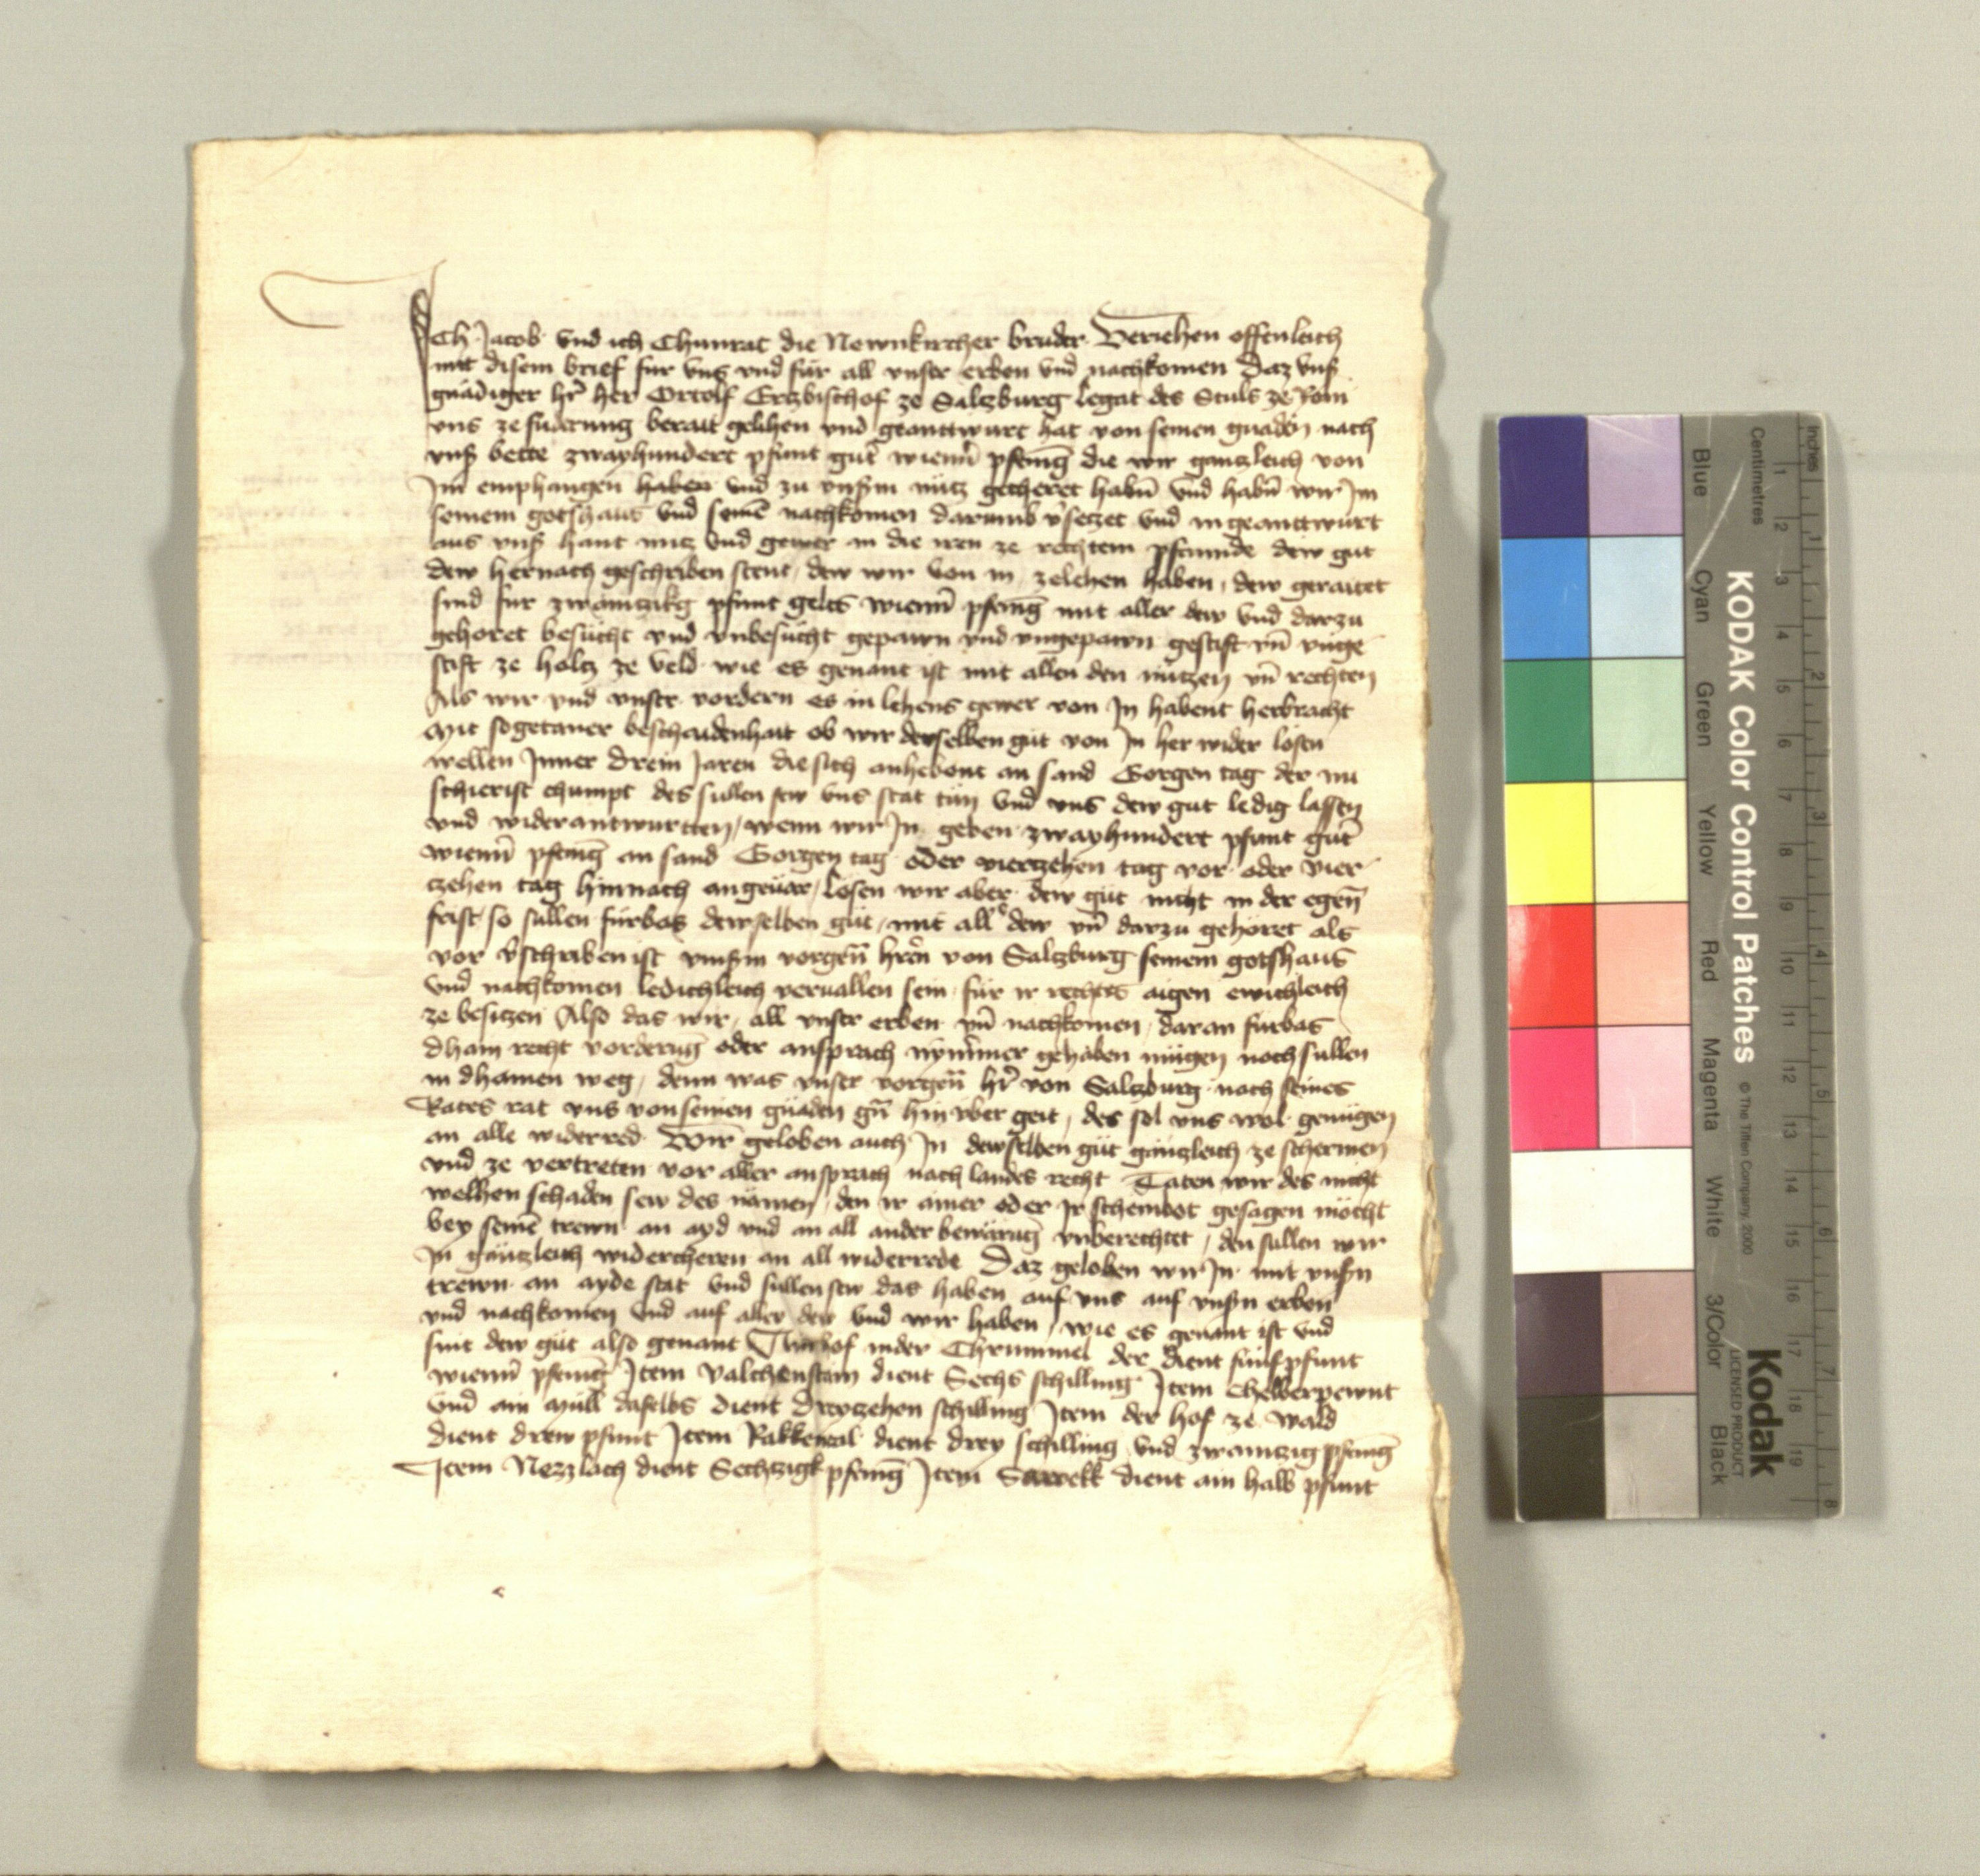 Ich Jacob vnd ich Chunrat die Newnkircher bruder Veriehen offenleich
mit disem brief fur vns vnd für all vnser erben vnd nachkomen Daz vnser
gnädiger hr̄ her Ortolf Ertzbischof ze Salzburg legat des Stuls ze Rom
vns ze fuderung berait gelihen vnd geanttwurt hat von seinen gnaden nach
vnser bette zwayhundert pfunt gut̄ wienn̄ pfenīg die wir gantzleich von
Im emphangen haben vnd zu vnserm nutz gecheret habn̄ vnd habn̄ wir Im
seinem gotshaus vnd seinē nachkomen darumb v̄setzet vnd in geanttwurt
aus vnser hant nutz vnd gewer in die iren ze rechtem pfannde dew gut
dew hernach geschriben stent, dew wir von in zelehen haben, dew geraitet
sind fur zwaintzikg pfunt gelts wienn̄ pfenīg mit aller dew vnd darzu
gehoret besucht vnd vnbesucht gepawn vnd vngepawn gestift vn̄ vnge
stift ze holtz ze veld wie es genant ist mit allen den nützen vn̄ rechten
Als wir vnd vnser vordern es in lehens gewer von In habent herbracht
Mit sogetaner beschaidenhait ob wir derselben gut von In her wider losen
wellen Inner drein Jaren die sich anhebent an sand Gorgen tag der nu
schierist chumpt des sullen sew vns stat tun vnd vns dew gut ledig lassen
vnd widerantwurtten, wenn wir In geben zwayhundert pfunt gut̄
wienn̄ pfenīg an sand Gorgen tag oder viertzehen tag vor oder vier
czehen tag hinnach angeuär, losen wir aber dew gut nicht in der egen̄
frist, so sullen fürbas dewselben gut, mit all dew vn̄ darzu gehöret als
vor v̄schriben ist vnserm vorgen̄ hr̄n von Salzburg seinem gotshaus
vnd nachkomen ledichleich veruallen sein für ir rechts aigen ewichleich
ze besitzen Also das wir, all vnser erben vn̄ nachkomen, daran fürbas
dhain recht vorderūg oder ansprach nymmer gehaben mügen noch sullen
in dhainen weg, denn was vnser vorgen̄ hr̄ von Salzburg nach seines
Rates rat vns von seinen gnaden gn̄ hin vber geit, des sol vns wol genügen
an alle widerred Wir geloben auch In dewselben güt gäntzleich ze schermen
vnd ze vertreten vor aller ansprach nach landes recht Taten wir des nicht
welhen schaden sew des nämen, den ir ainer oder Ir scheinbot gesagen möcht
bey seinē trewn an ayd vnd an all ander bewärūg vnberechtet, den sullen wir
In gäntzleich widercheren an all widerrede Daz geloben wir In mit vnsern
trewn an ayde stat vnd sullen sew das haben auf vns auf vnsern erben
vnd nachkomen vnd auf aller dew vnd wir haben, wie es genant ist vnd
sint dew güt also genant inder Chrummel der dient fünf pfunt
wienn̄ pfenīg Item Valchenstain dient Sechs schilling Item Chelberpewnt
vnd ain Müll daselbs dient drewzehen schilling Item der hof ze Wald
dient drew pfunt Item dient drey schilling vnd zwaintzig pfenīg
Item Nezzlach dient Sechtzigk pfenīg Item dient ain halb pfunt
Blue
Cyan
Green
Yellow
Red
Magenta
White
3/Color
Black
KODAK Color Control Patches
© The Tiffen Company, 2000
Kodak
LICENSED PRODUCT
Centimetres
1 2 3 4 5 6 7 8 9 10 11 12 13 14 15 16 17 18 19
Inches
1 2 3 4 5 6 7 8